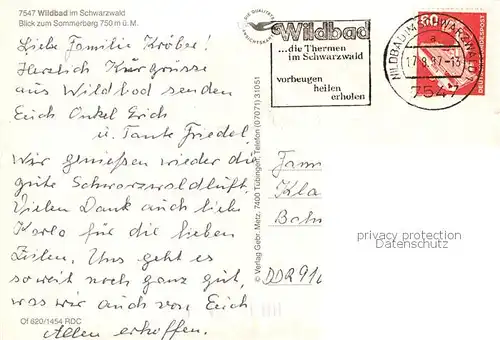 7547 Wildbad im Schwarzwald
Blick zum Sommerberg 750 m ü. M.
Liebe Familie Kröber!
Herzlich Kurgrüsse
aus Wildbad senden
Euch Onkel Erich
u. Tante Friedel
Wir genießen wieder die
gute Schwarzwaldluft.
Vielen Dank auch liebe
Karla für die lieben
Zeilen. Uns geht es
soweit noch ganz gut,
was wir auch von Euch
Allen erhoffen.
Of 820/1454 RDC
© Verlag Gebr. Metz, 7400 Tübingen, Telefon (07071) 31051
Wildbad
...die Thermen
im Schwarzwald
vorbeugen
heilen
erholen
WILDBAD IM SCHWARZWALD
a
17.8.87-13
7547
80
DEUTSCHE BUNDESPOST
Fam
Kla
Bahn
DDR 916
permission of
Datenschutz